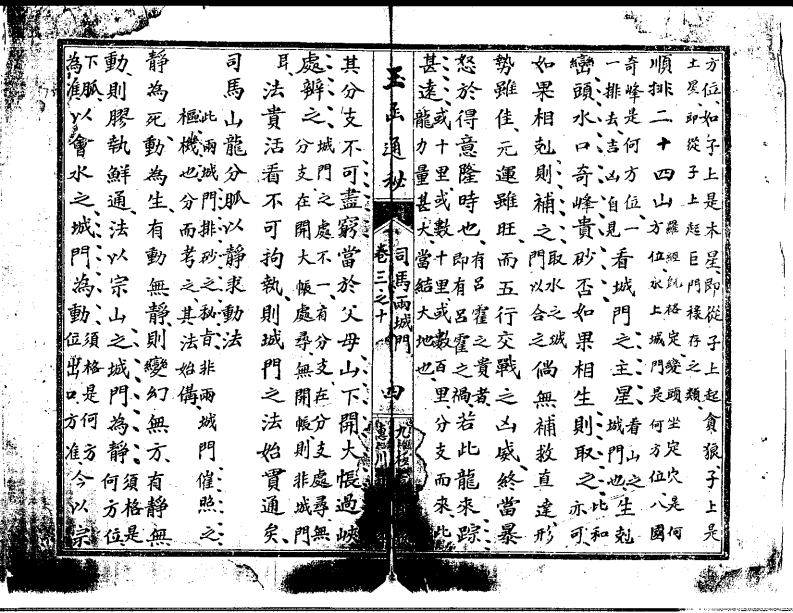 方位、如子上是木星、即從子上起貪狼、子上是
土星、即從子上起巨門祿存之類、
順排二十四山羅經既格定巒頭坐定穴是何
方位、次上城門是何方位、八國
奇峰是何方位、一看城門之主星看山之生剋
一排去、吉凶自見城門也、比和
巒頭水口奇峰貴砂否如果相生則取之亦可、
如果相剋則補之取水之城
門以合之倘無補救直達形
勢雖佳、元運雖旺、而五行交戰之凶威終當暴
怒於得意隆時也、有呂霍之貴者
即有呂霍之禍若此龍來踪
甚遠或十里或數十里或數百里、分支而來、此
龍力量甚大當結大地也、
玉函通秘
卷三之十
司馬兩城門
四
其分支不可盡窮當於父母山下開大帳過峽
處辨之、城門之處不一、有分支在分支處尋、無
分支在開大帳處尋、無開帳則非城門
耳、法貴活看不可拘執、則城門之法始貫通矣、
司馬山龍分脈以靜求動法
此兩城門排砂之秘旨、非兩城門催照之
樞機也分而考之、其法始備、
靜為死動為生、有動無靜、則變幻無方、有靜無
動、則膠執鮮通、法以宗山之城門為靜、須格是
何方位
下脈以會水之城門為動、須格是何方
位出口、方准今以宗
為准